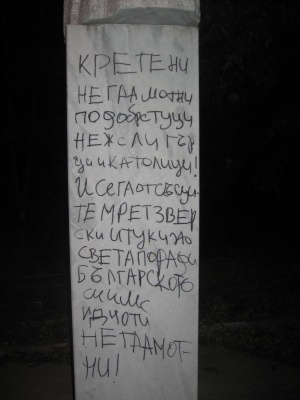 КРЕТЕНИ
НЕГРАМОТНИ
ПОДОБРЕТУЦИ
НЕЖСЛИГЪР
ЦИИКАТОЛИЦИ!
ИСЕГАОТСВСИ
ТЕМРЕТЗВЕР
СКИИТУКИПО
СВЕТАПОРАДИ
БЪЛГАРСКОТО
СИИМЕ
ИДИОТИ
НЕГРАМОТ-
НИ!